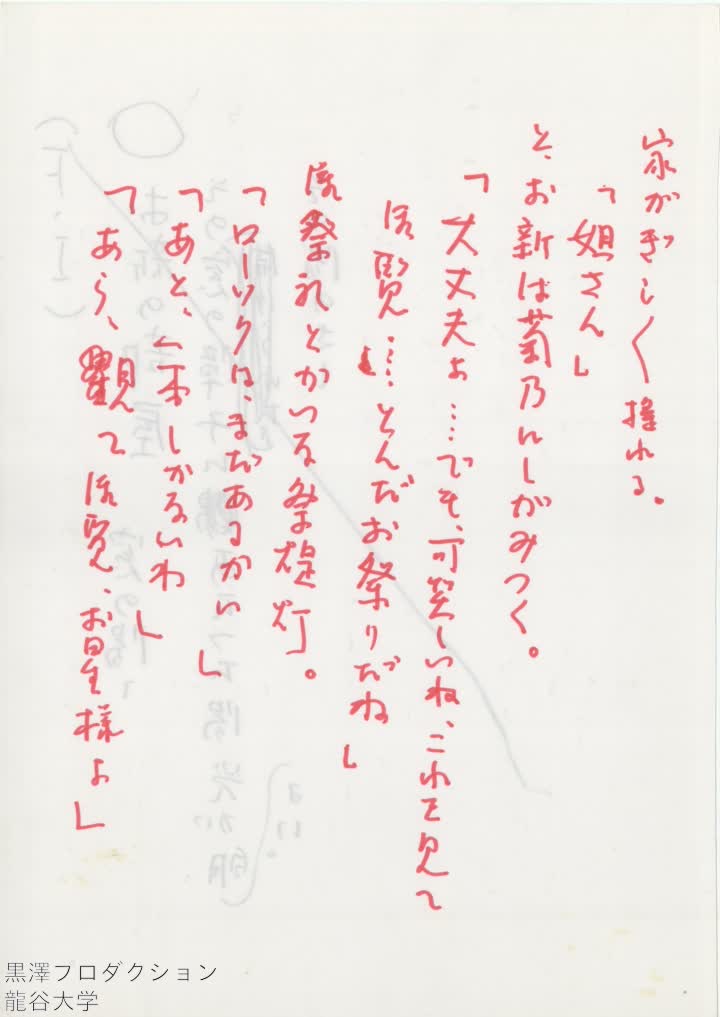 家がぎしく揺れる。
「姐さん」
と、お新は菊乃にしがみつく。
「大丈夫よ……でも、可笑しいね、これを見て
御覧……とんだお祭りだね」
御祭礼とかいる祭提灯。
「ローソクは、まだあるかい」
「あと、一本しかないわ」
「あら、観て御覧、お星様よ」
黒澤プロダクション
龍谷大学